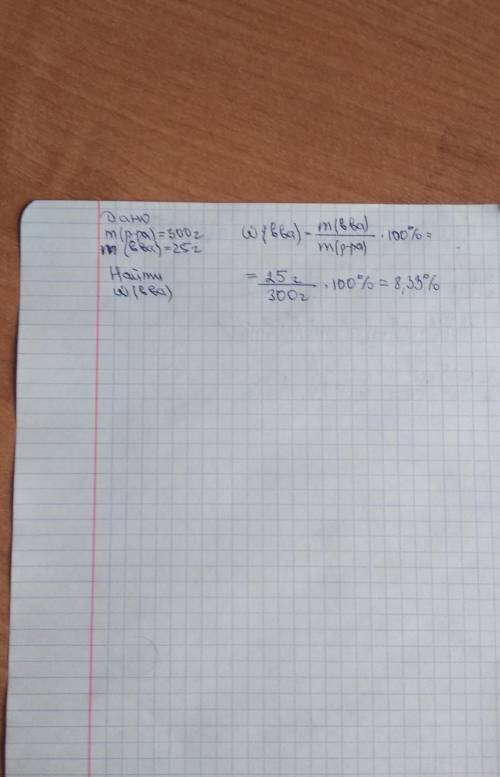 Дано
m(р-ра)=300г
m(в-ва)=25г
Найти
ω(вва)
ω(вва)=m(вва)/m(р-ра)·100%=
=25г/300г·100%=8,33%